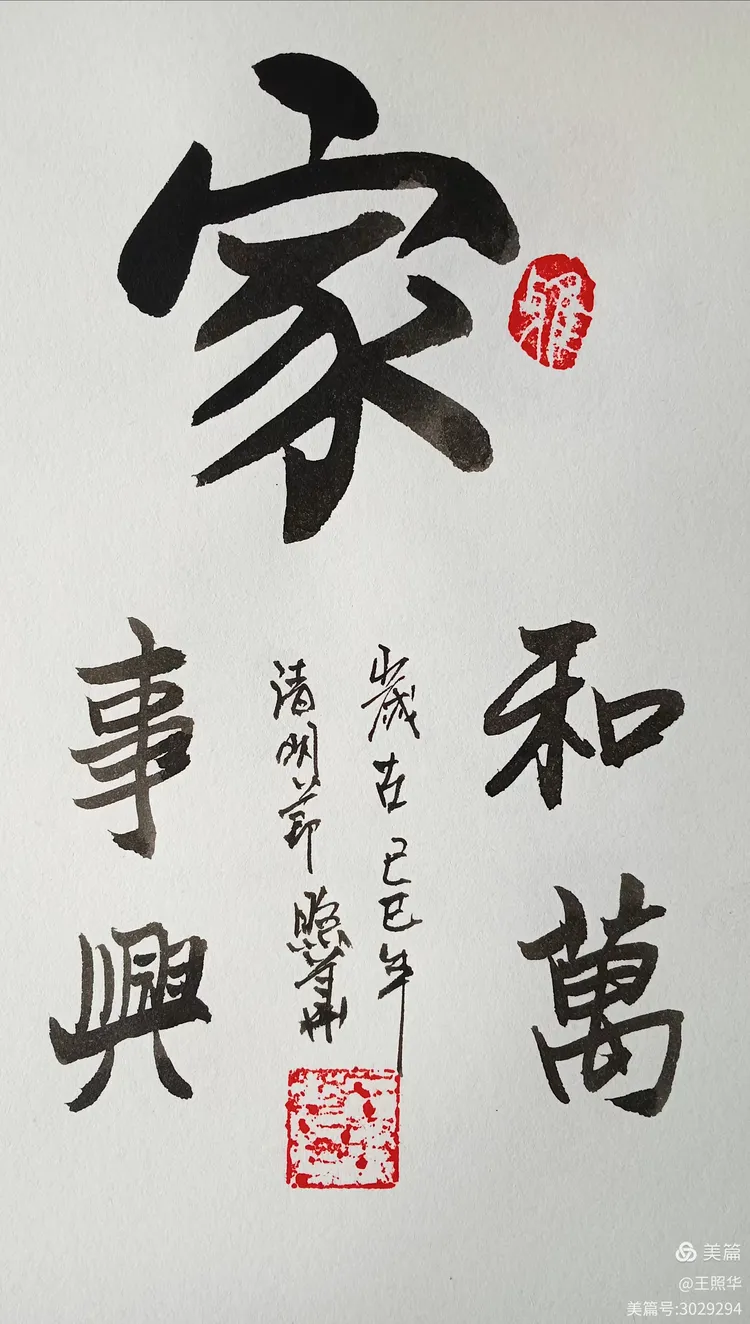 家
和萬
事興
歲在巳年
清明節 照華
美篇
@王照华
美篇号:3029294